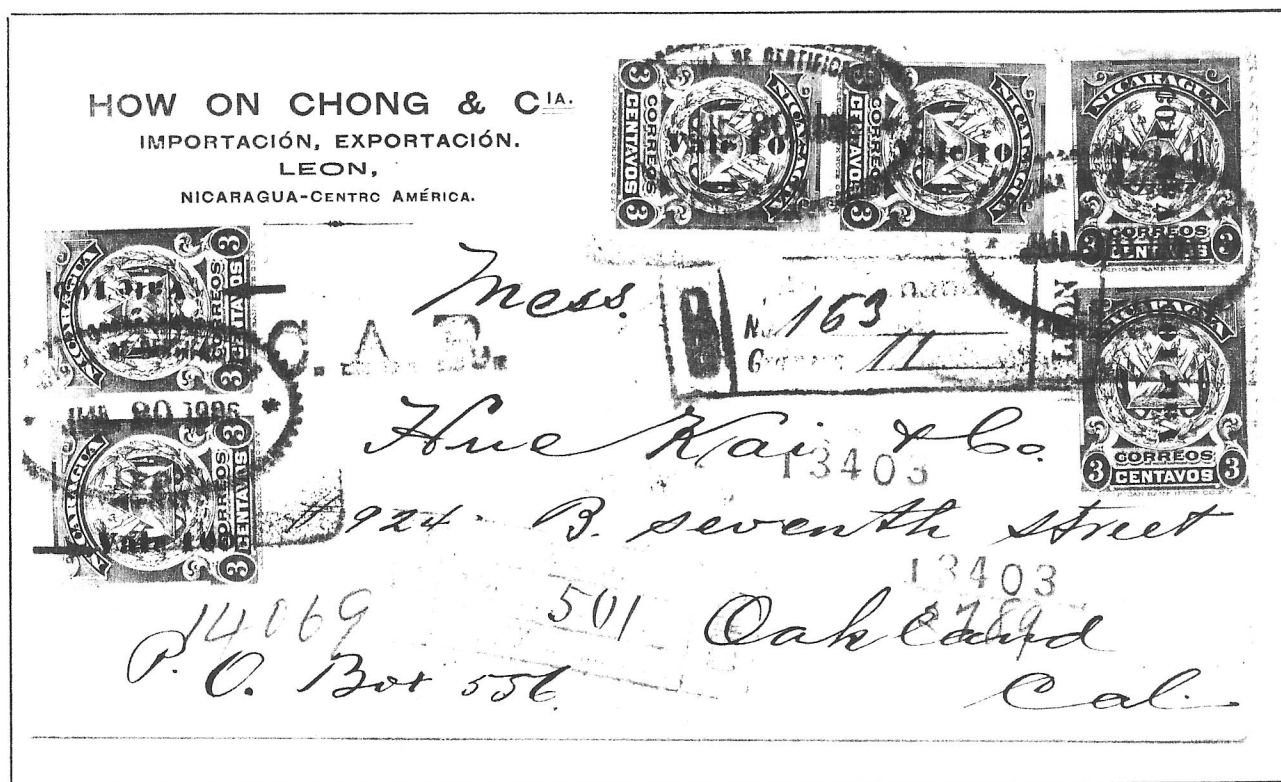 HOW ON CHONG & CIA.
IMPORTACIÓN, EXPORTACIÓN.
LEON,
NICARAGUA-CENTRO AMÉRICA.
3 CORREOS 3
CENTAVOS
NICARAGUA
Vale 10
3 CORREOS 3
CENTAVOS
NICARAGUA
Vale 10
NICARAGUA
3 CORREOS 3
CENTAVOS
NICARAGUA
CORREOS
3 CENTAVOS 3
NICARAGUA
CORREOS
3 CENTAVOS 3
NICARAGUA
CORREOS
3 CENTAVOS 3
Vale 10
Mess.
No. 163
11
Hue Kai & Co.
13403
# 924 B. seventh street
13403
14069
501
Oakland
P. O. Box 556.
Cal.